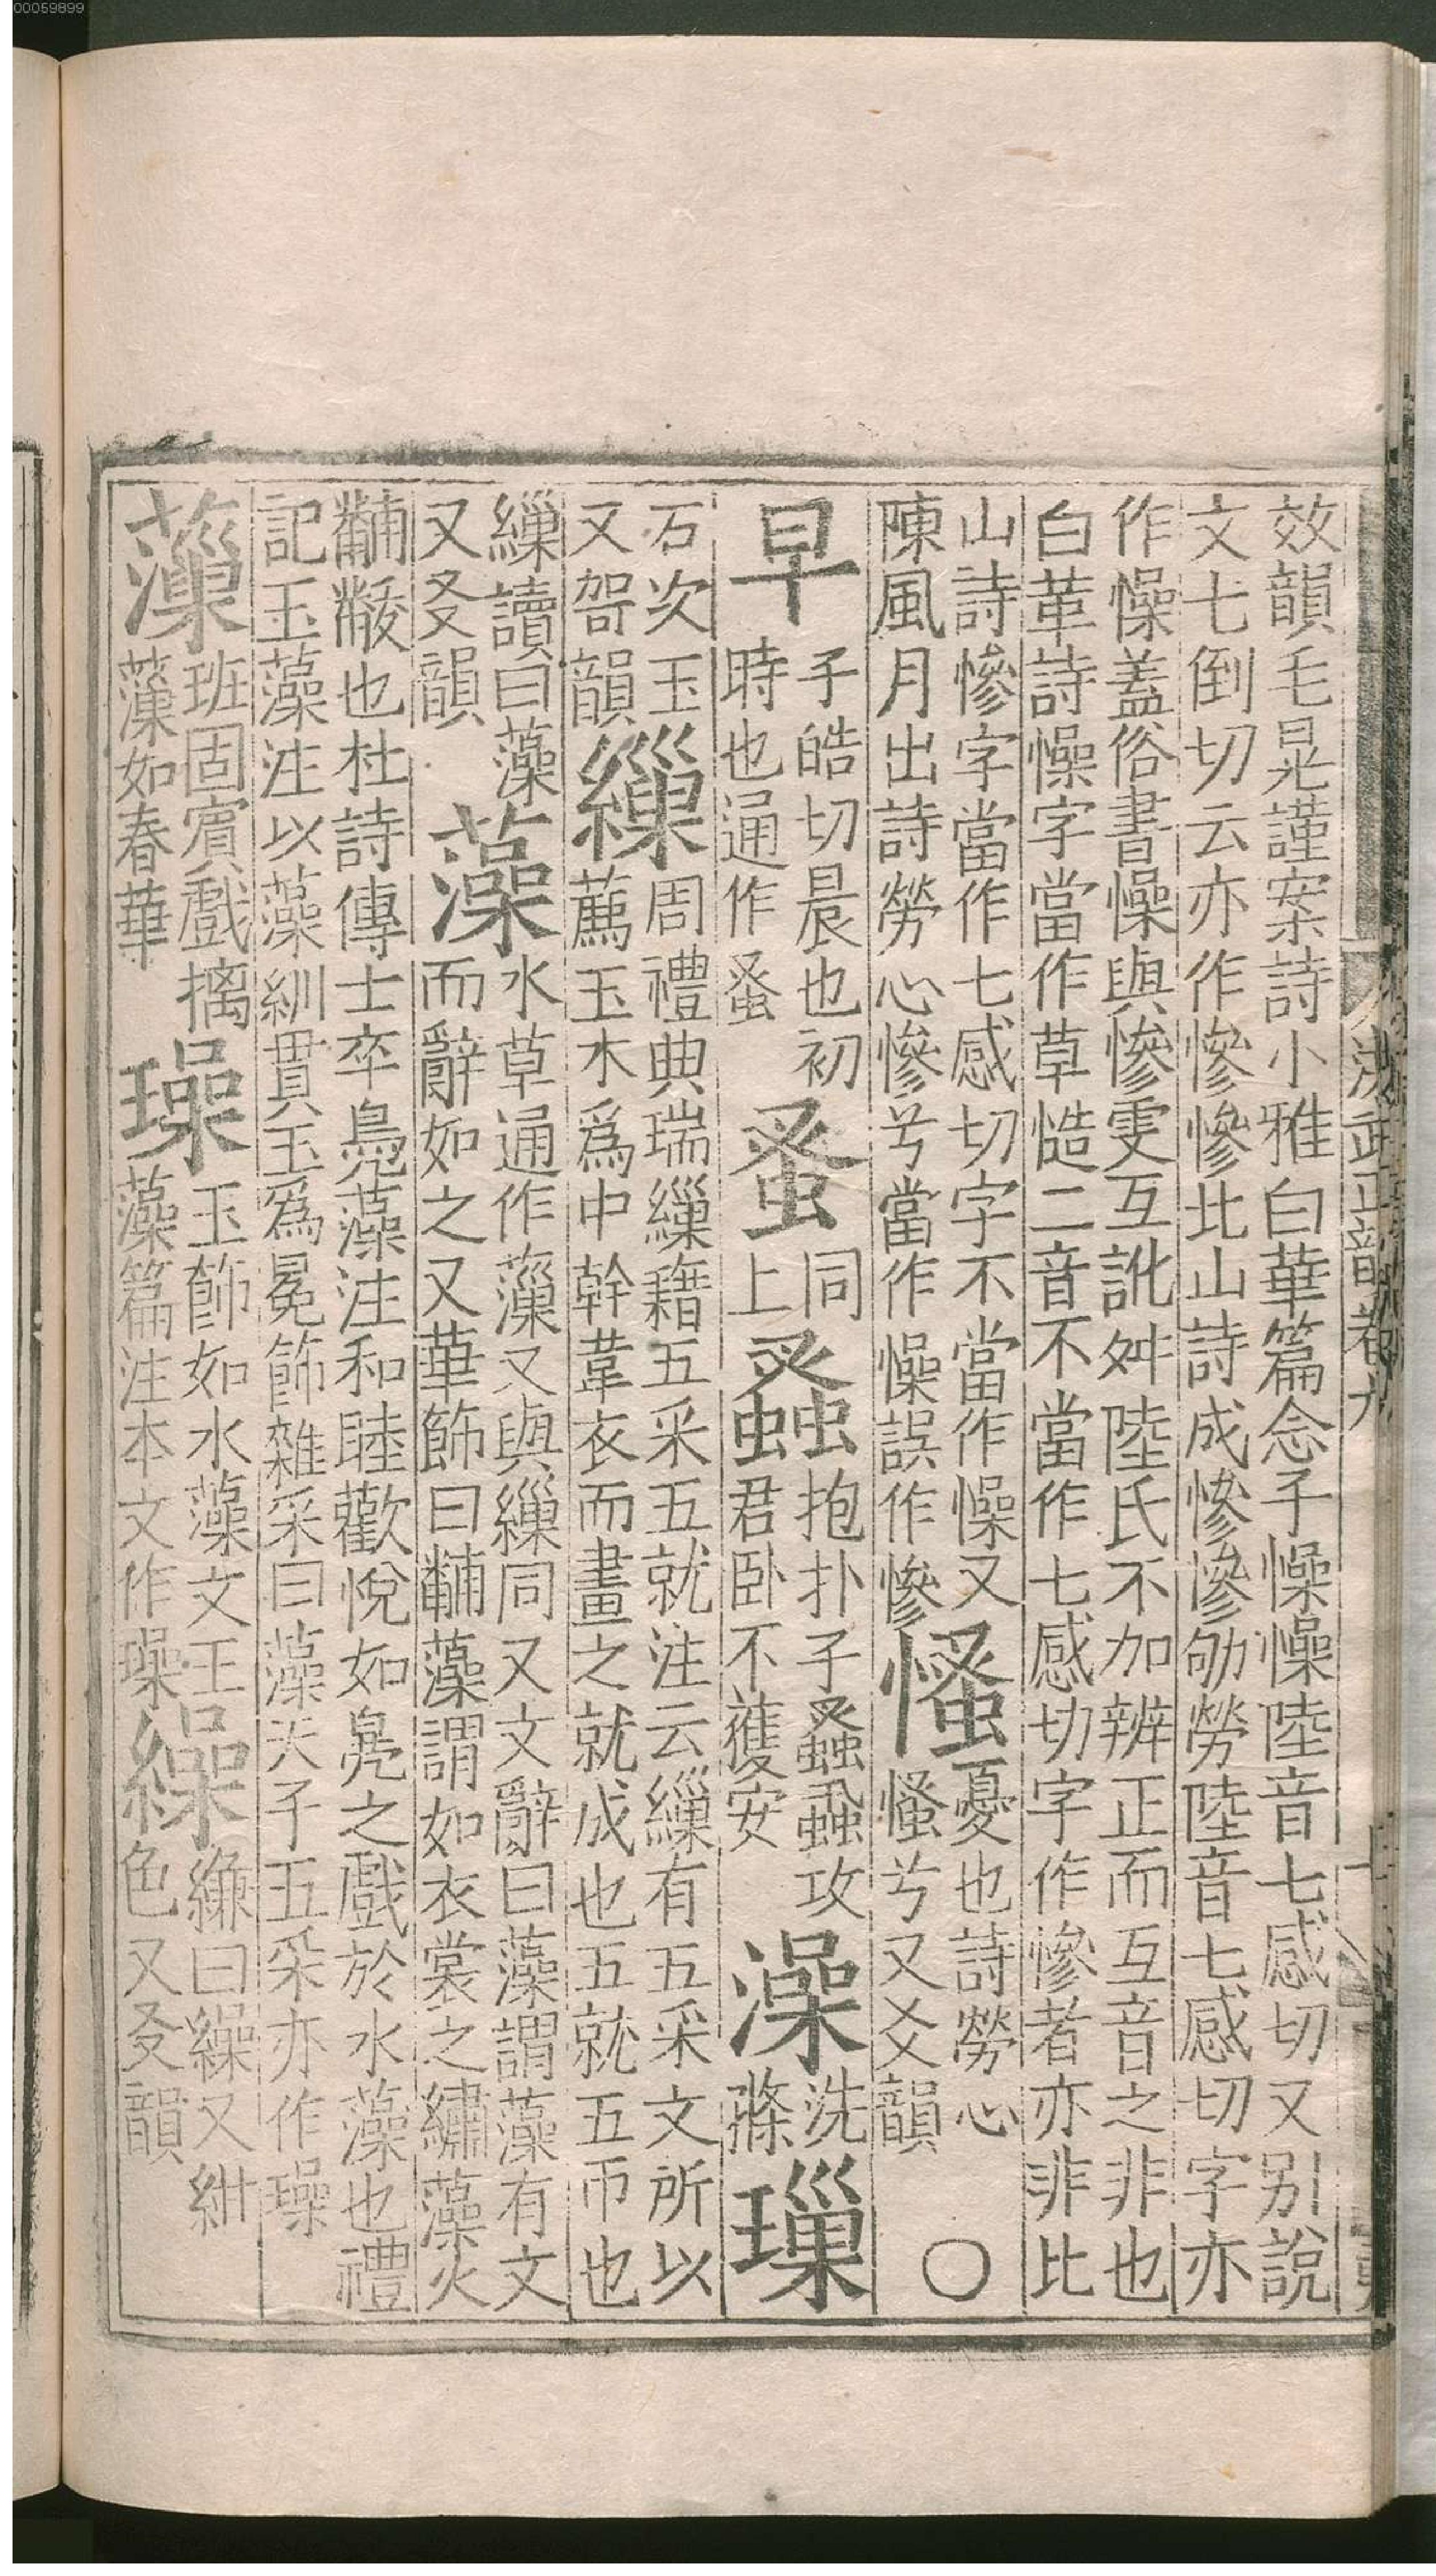 00059899
洪武正韻卷九
效韻毛晃謹案詩小雅白華篇念子懆懆陸音七感切又别說
文七倒切云亦作慘慘北山詩成慘慘劬勞陸音七感切字亦
作懆蓋俗書懆與慘雯互訛舛陸氏不加辨正而互音之非也
白華詩懆字當作草慥二音不當作七感切字作慘者亦非比
山詩慘字當作七感切字不當作懆又
陳風月出詩勞心慘兮當作懆誤作慘
慅
憂也詩勞心
慅兮又爻韻
〇
早
子皓切晨也初
時也通作蚤
蚤
同
上
𧎮
抱扑子𧎮蝨攻
君卧不獲安
澡
洗
滌
璅
石次玉
又哿韻
繅
周禮典瑞繅藉五采五就注云繅有五采文所以
薦玉木爲中幹韋衣而畫之就成也五就五帀也
繅讀曰藻
又爻韻
藻
水草通作薻又與繅同又文辭曰藻謂藻有文
而辭如之又華飾曰黼藻謂如衣裳之繡藻火
黼黻也杜詩傳士卒鳧藻注和睦歡悅如鳧之戲於水藻也禮
記玉藻注以藻紃貫玉爲冕飾雜采曰藻天子五采亦作璪
薻
班固賔戲摛
薻如春華
璪
玉飾如水藻文王
藻篇注本文作璪
繰
縑曰繰又紺
色又爻韻